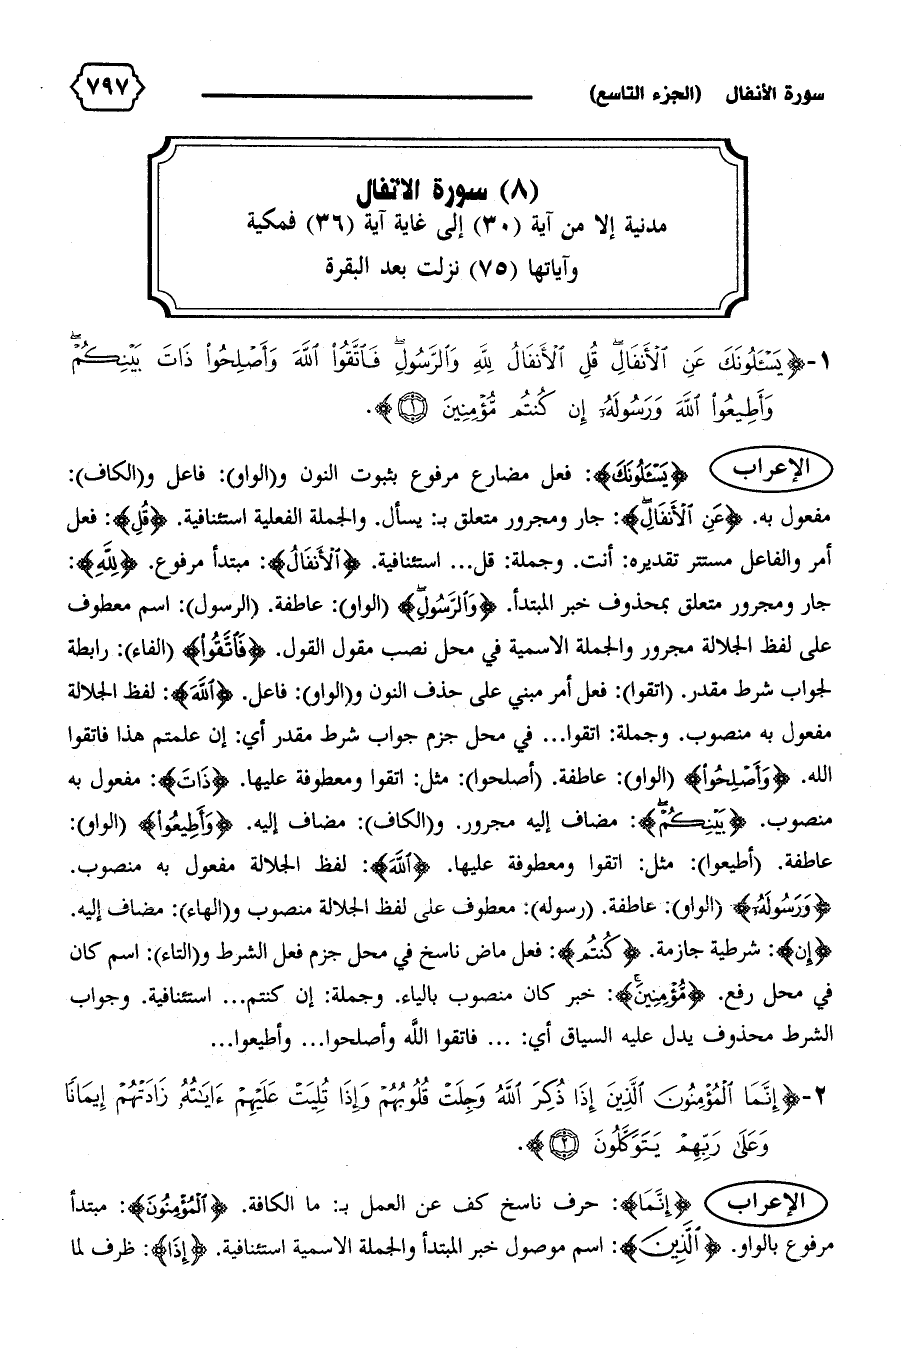 سورة الأنفال (الجزء التاسع) ٧٩٧
(٨) سورة الانفال
مدنية إلا من آية (٣٠) إلى غاية آية (٣٦) فمكية
وآياتها (٧٥) نزلت بعد البقرة
١- ﴿يَسْـَٔلُونَكَ عَنِ ٱلْأَنفَالِۖ قُلِ ٱلْأَنفَالُ لِلَّهِ وَٱلرَّسُولِۖ فَٱتَّقُوا۟ ٱللَّهَ وَأَصْلِحُوا۟ ذَاتَ بَيْنِكُمْۖ
وَأَطِيعُوا۟ ٱللَّهَ وَرَسُولَهُۥٓ إِن كُنتُم مُّؤْمِنِينَ ۝١﴾.
الإعراب ﴿يَسْـَٔلُونَكَ﴾: فعل مضارع مرفوع بثبوت النون و(الواو): فاعل و(الكاف):
مفعول به. ﴿عَنِ ٱلْأَنفَالِۖ﴾: جار ومجرور متعلق بـ: يسأل. والجملة الفعلية استئنافية. ﴿قُلِ﴾: فعل
أمر والفاعل مستتر تقديره: أنت. وجملة: قل... استئنافية. ﴿ٱلْأَنفَالُ﴾: مبتدأ مرفوع. ﴿لِلَّهِ﴾:
جار ومجرور متعلق بمحذوف خبر المبتدأ. ﴿وَٱلرَّسُولِۖ﴾ (الواو): عاطفة. (الرسول): اسم معطوف
على لفظ الجلالة مجرور والجملة الاسمية في محل نصب مقول القول. ﴿فَٱتَّقُوا۟﴾ (الفاء): رابطة
لجواب شرط مقدر. (اتقوا): فعل أمر مبني على حذف النون و(الواو): فاعل. ﴿ٱللَّهَ﴾: لفظ الجلالة
مفعول به منصوب. وجملة: اتقوا... في محل جزم جواب شرط مقدر أي: إن علمتم هذا فاتقوا
الله. ﴿وَأَصْلِحُوا۟﴾ (الواو): عاطفة. (أصلحوا): مثل: اتقوا ومعطوفة عليها. ﴿ذَاتَ﴾: مفعول به
منصوب. ﴿بَيْنِكُمْۖ﴾: مضاف إليه مجرور. و(الكاف): مضاف إليه. ﴿وَأَطِيعُوا۟﴾ (الواو):
عاطفة. (أطيعوا): مثل: اتقوا ومعطوفة عليها. ﴿ٱللَّهَ﴾: لفظ الجلالة مفعول به منصوب.
﴿وَرَسُولَهُۥٓ﴾ (الواو): عاطفة. (رسوله): معطوف على لفظ الجلالة منصوب و(الهاء): مضاف إليه.
﴿إِن﴾: شرطية جازمة. ﴿كُنتُم﴾: فعل ماض ناسخ في محل جزم فعل الشرط و(التاء): اسم كان
في محل رفع. ﴿مُّؤْمِنِينَ﴾: خبر كان منصوب بالياء. وجملة: إن كنتم... استئنافية. وجواب
الشرط محذوف يدل عليه السياق أي: ... فاتقوا اللَّه وأصلحوا... وأطيعوا...
٢- ﴿إِنَّمَا ٱلْمُؤْمِنُونَ ٱلَّذِينَ إِذَا ذُكِرَ ٱللَّهُ وَجِلَتْ قُلُوبُهُمْ وَإِذَا تُلِيَتْ عَلَيْهِمْ ءَايَـٰتُهُۥ زَادَتْهُمْ إِيمَـٰنًا
وَعَلَىٰ رَبِّهِمْ يَتَوَكَّلُونَ ۝٢﴾.
الإعراب ﴿إِنَّمَا﴾: حرف ناسخ كف عن العمل بـ: ما الكافة. ﴿ٱلْمُؤْمِنُونَ﴾: مبتدأ
مرفوع بالواو. ﴿ٱلَّذِينَ﴾: اسم موصول خبر المبتدأ والجملة الاسمية استئنافية. ﴿إِذَا﴾: ظرف لما